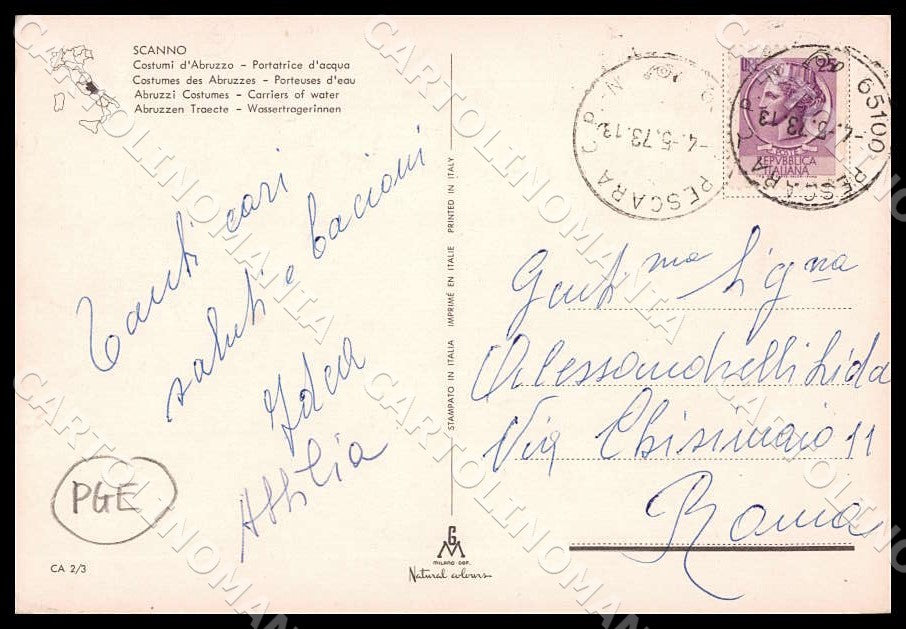 SCANNO
Costumi d'Abruzzo - Portatrice d'acqua
Costumes des Abruzzes - Porteuses d'eau
Abruzzi Costumes - Carriers of water
Abruzzen Traecte - Wassertragerinnen
Tanti cari
saluti e bacioni
Idea
Attilia
PGE
CA 2/3
STAMPATO IN ITALIA IMPRIMÉ EN ITALIE PRINTED IN ITALY
GM
MILANO DEP.
Natural colours
PESCARA C.P.N.
-4.-5.73.13
LIRE 250
POSTE
REPVBBLICA
ITALIANA
65100 PESCARA C.P.N.
-4.-5.73.13
Gent ma Sig na
Alessandrelli Lida
Via Chisimaio 11
Roma
CARTOLINOMANIA